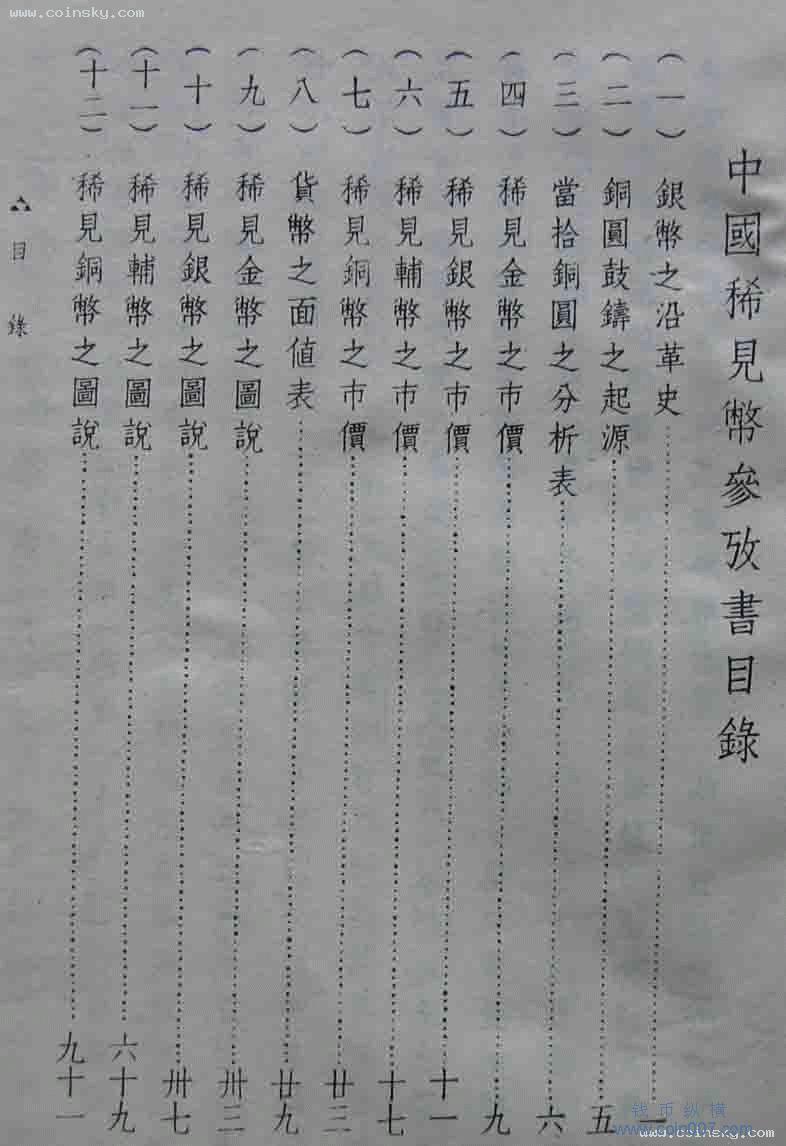 www.coinsky.com
中國稀見幣參攷書目錄
(一) 銀幣之沿革史……一
(二) 銅圓鼓鑄之起源……五
(三) 當拾銅圓之分析表……六
(四) 稀見金幣之市價……九
(五) 稀見銀幣之市價……十一
(六) 稀見輔幣之市價……十七
(七) 稀見銅幣之市價……廿三
(八) 貨幣之面値表……廿九
(九) 稀見金幣之圖說……卅三
(十) 稀見銀幣之圖說……卅七
(十一) 稀見輔幣之圖說……六十九
(十二) 稀見銅幣之圖說……九十一
目錄
钱币纵横
www.coin007.com
www.coinsky.com